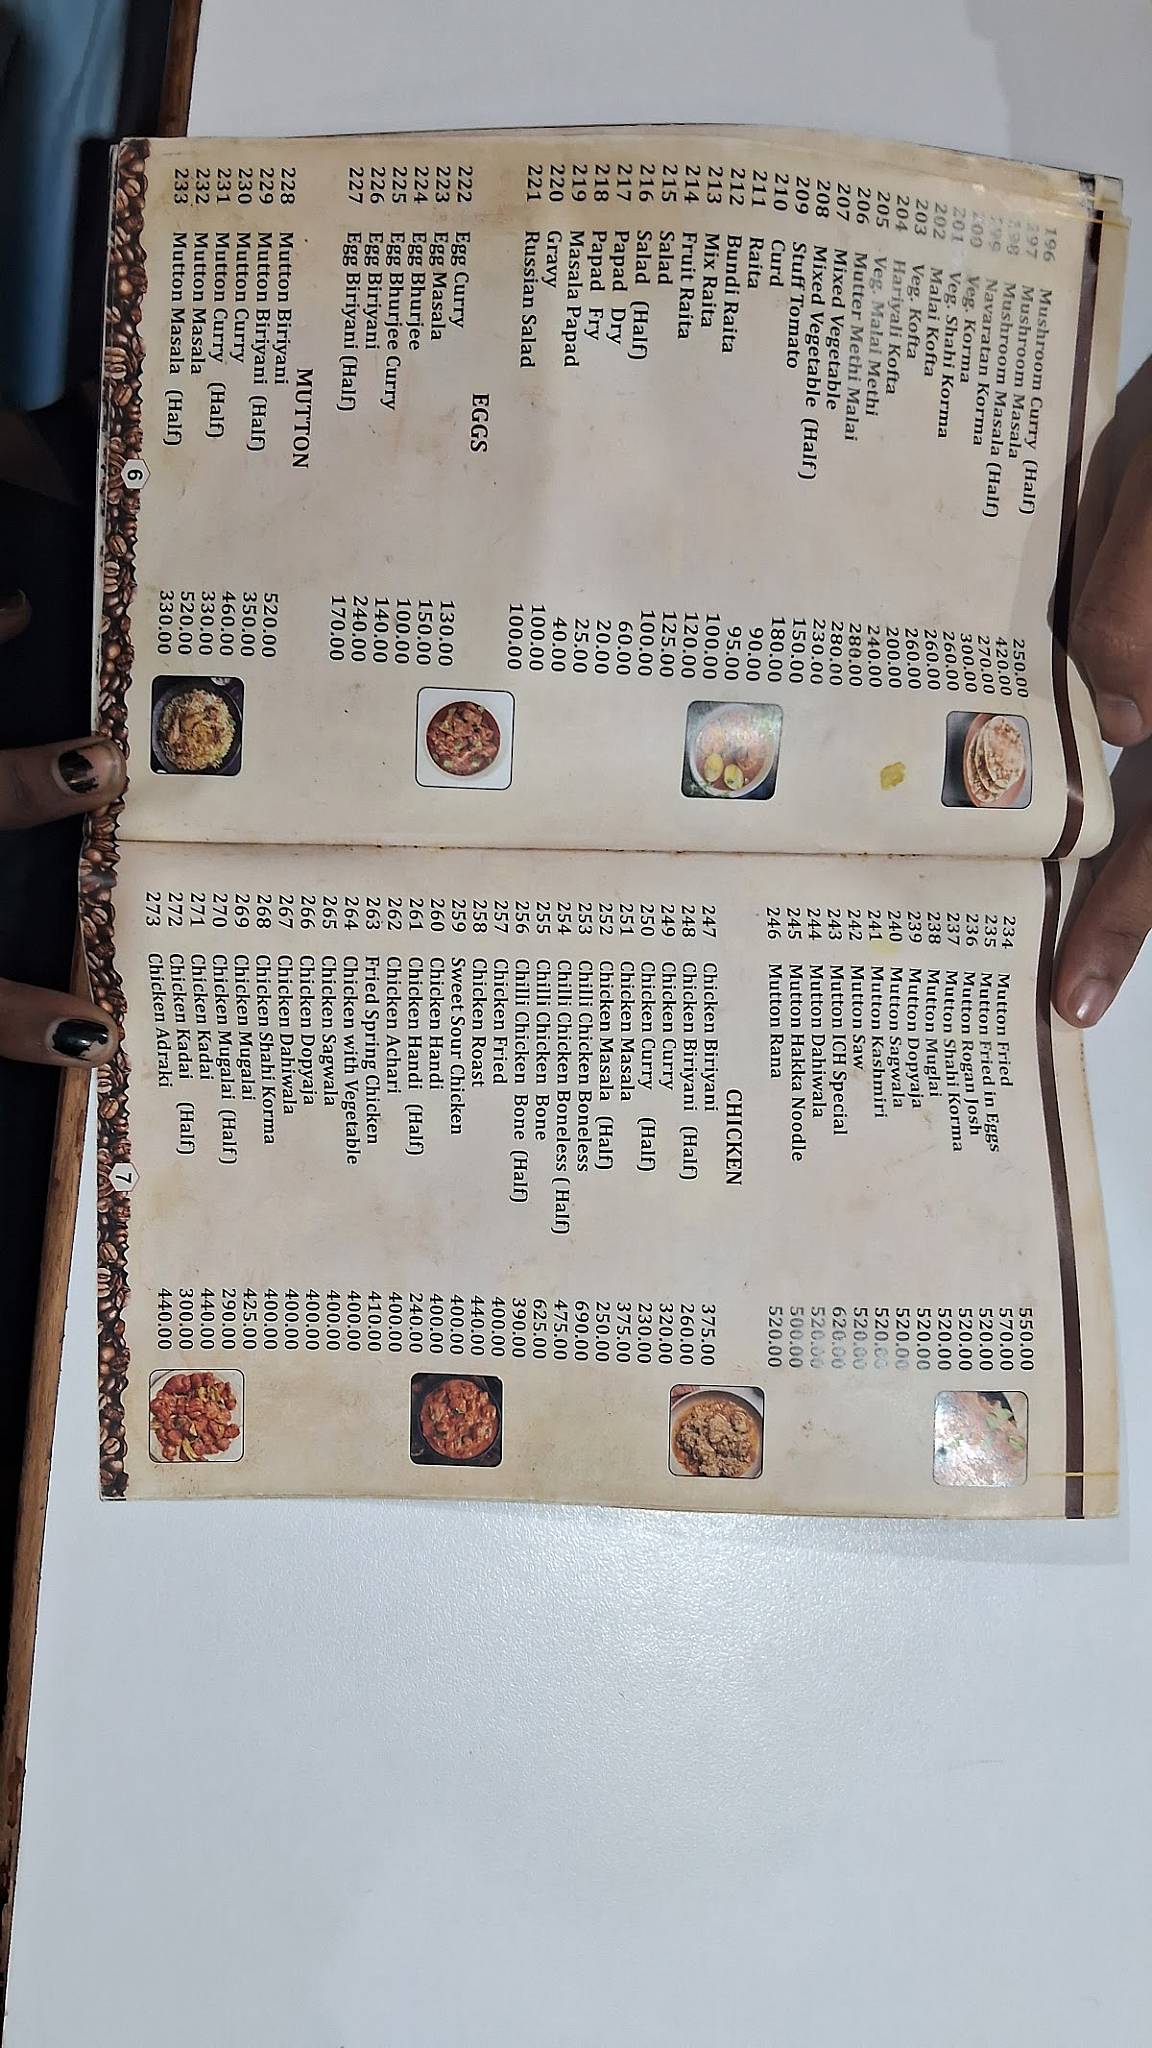 196 Mushroom Curry (Half) 250.00
197 Mushroom Masala 420.00
198 Mushroom Masala (Half) 270.00
199 Navaratan Korma 300.00
200 Veg. Korma 260.00
201 Veg. Shahi Korma 260.00
202 Malai Kofta 260.00
203 Veg. Kofta 200.00
204 Hariyali Kofta 240.00
205 Veg. Malai Methi 280.00
206 Mutter Methi Malai 280.00
207 Mixed Vegetable 230.00
208 Mixed Vegetable (Half) 150.00
209 Stuff Tomato 180.00
210 Curd 90.00
211 Raita 95.00
212 Bundi Raita 100.00
213 Mix Raita 120.00
214 Fruit Raita 125.00
215 Salad 100.00
216 Salad (Half) 60.00
217 Papad Dry 20.00
218 Papad Fry 25.00
219 Masala Papad 40.00
220 Gravy 100.00
221 Russian Salad 100.00
EGGS
222 Egg Curry 130.00
223 Egg Masala 150.00
224 Egg Bhurjee 100.00
225 Egg Bhurjee Curry 140.00
226 Egg Biriyani 240.00
227 Egg Biriyani (Half) 170.00
MUTTON
228 Mutton Biriyani 520.00
229 Mutton Biriyani (Half) 350.00
230 Mutton Curry 460.00
231 Mutton Curry (Half) 330.00
232 Mutton Masala 520.00
233 Mutton Masala (Half) 330.00
6
234 Mutton Fried 550.00
235 Mutton Fried in Eggs 570.00
236 Mutton Rogan Josh 520.00
237 Mutton Shahi Korma 520.00
238 Mutton Muglai 520.00
239 Mutton Dopyaja 520.00
240 Mutton Sagwala 520.00
241 Mutton Kashmiri 520.00
242 Mutton Saw 520.00
243 Mutton ICH Special 620.00
244 Mutton Dahiwala 520.00
245 Mutton Hakka Noodle 500.00
246 Mutton Rana 520.00
CHICKEN
247 Chicken Biriyani 375.00
248 Chicken Biriyani (Half) 260.00
249 Chicken Curry 320.00
250 Chicken Curry (Half) 230.00
251 Chicken Masala 375.00
252 Chicken Masala (Half) 250.00
253 Chilli Chicken Boneless 690.00
254 Chilli Chicken Boneless ( Half) 475.00
255 Chilli Chicken Bone 625.00
256 Chilli Chicken Bone (Half) 390.00
257 Chicken Fried 400.00
258 Chicken Roast 440.00
259 Sweet Sour Chicken 400.00
260 Chicken Handi 400.00
261 Chicken Handi (Half) 240.00
262 Chicken Achari 400.00
263 Fried Spring Chicken 410.00
264 Chicken with Vegetable 400.00
265 Chicken Sagwala 400.00
266 Chicken Dopyaja 400.00
267 Chicken Dahiwala 400.00
268 Chicken Shahi Korma 400.00
269 Chicken Mugalai 425.00
270 Chicken Mugalai (Half) 290.00
271 Chicken Kadai 440.00
272 Chicken Kadai (Half) 300.00
273 Chicken Adraki 440.00
7